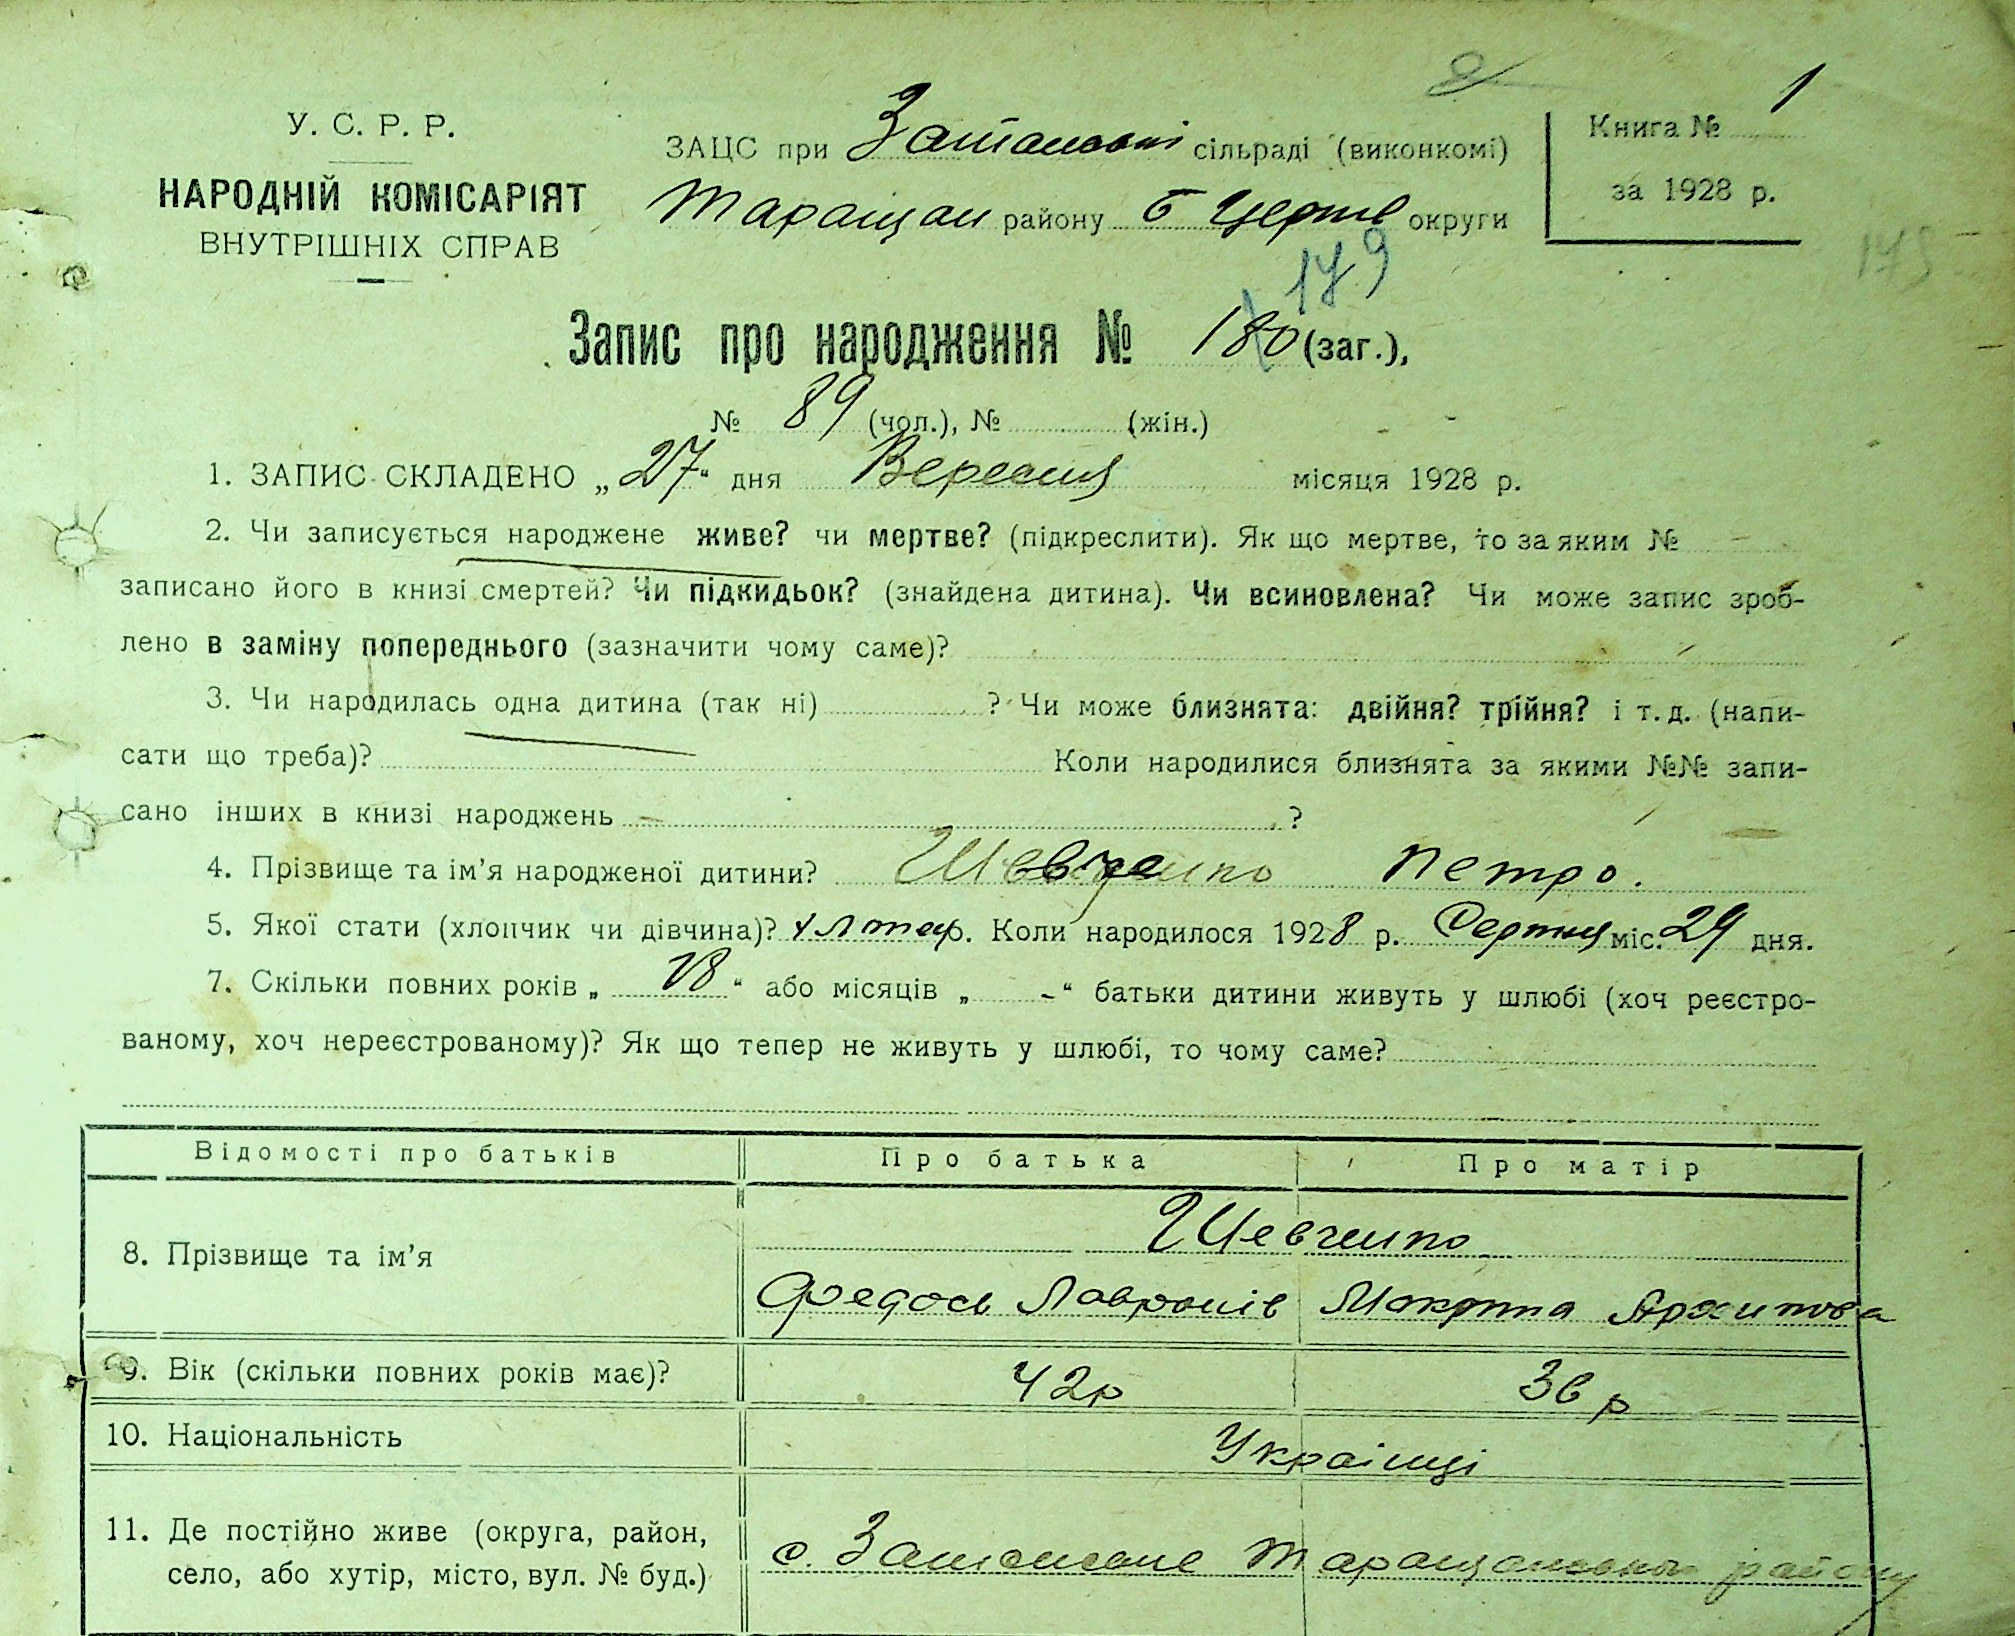 1
У. С. Р. Р.
НАРОДНІЙ КОМІСАРІЯТ
ВНУТРІШНІХ СПРАВ
ЗАЦС при сільраді (виконкомі)
Таращан району Б Церкв округи
Книга №
за 1928 р.
175
179
Запис про народження № 180 (заг.),
№ 89 (чол.), № (жін.)
1. ЗАПИС СКЛАДЕНО „27“ дня Вересня місяця 1928 р.
2. Чи записується народжене живе? чи мертве? (підкреслити). Як що мертве, то за яким №
записано його в книзі смертей? Чи підкидьок? (знайдена дитина). Чи всиновлена? Чи може запис зроб-
лено в заміну попереднього (зазначити чому саме)?
3. Чи народилась одна дитина (так ні) ? Чи може близнята: двійня? трійня? і т. д. (напи-
сати що треба)? Коли народилися близнята за якими №№ запи-
сано інших в книзі народжень ?
4. Прізвище та ім’я народженої дитини? Шевченко Петро.
5. Якої стати (хлопчик чи дівчина)? 6. Коли народилося 1928 р. Серпня міс. 29 дня.
7. Скільки повних років „18“ або місяців „-“ батьки дитини живуть у шлюбі (хоч реєстро-
ваному, хоч нереєстрованому)? Як що тепер не живуть у шлюбі, то чому саме?
Відомості про батьків Про батька Про матір
8. Прізвище та ім’я Шевченко
Федось Лавронів Мокрина Архипова
9. Вік (скільки повних років має)? 42р 36 р
10. Національність Українці
11. Де постійно живе (округа, район,
село, або хутір, місто, вул. № буд.)
с. Таращанського району